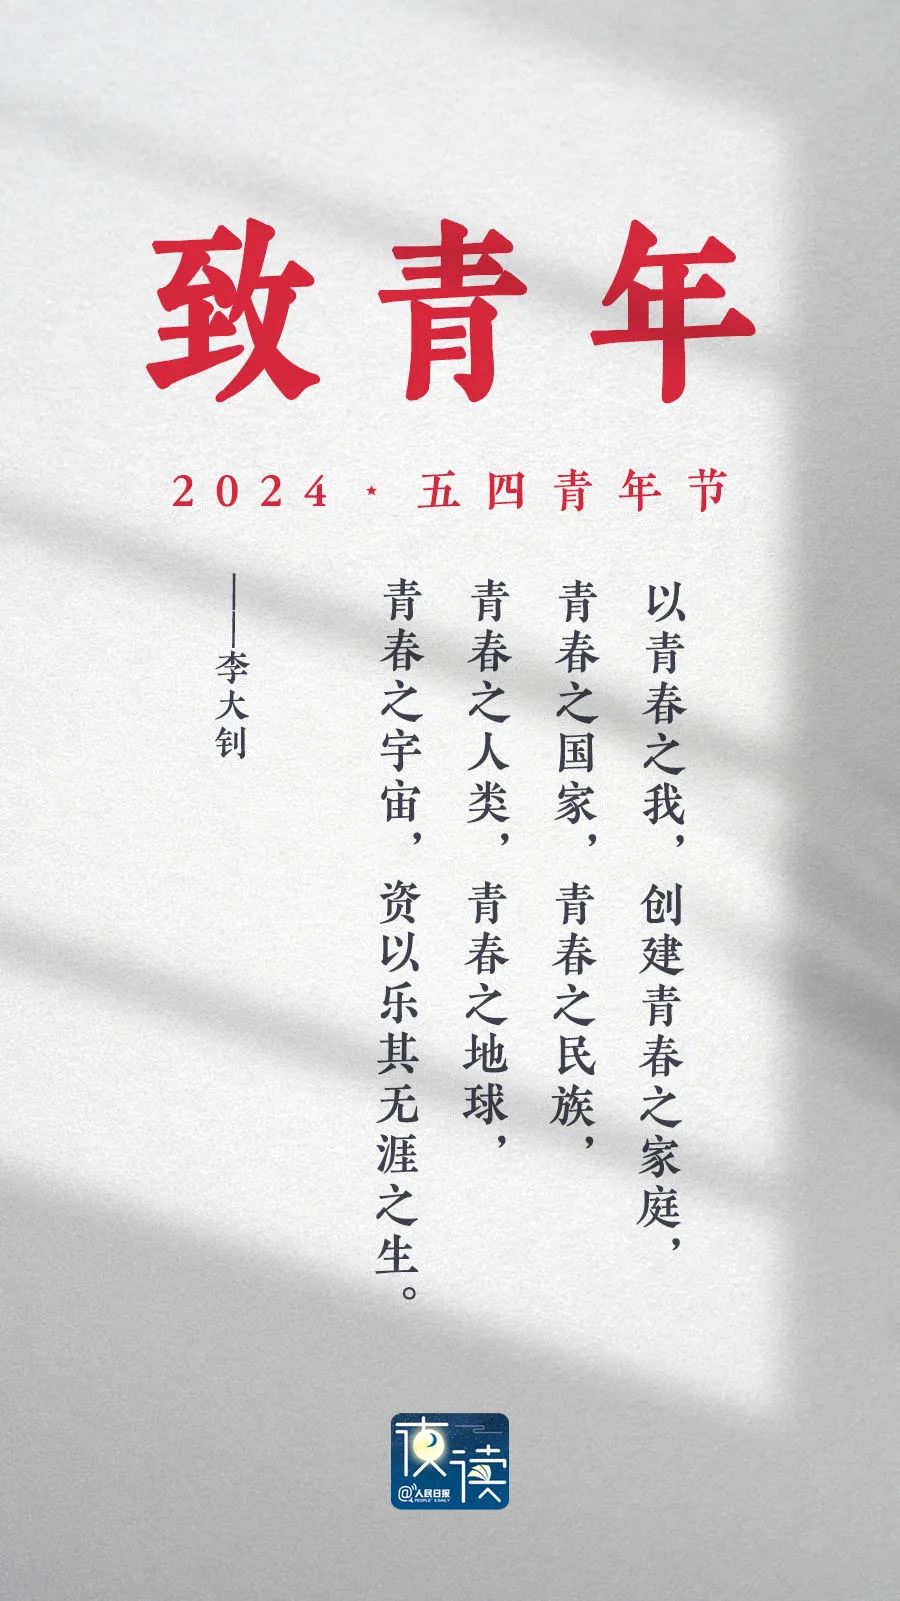 致青年
2024·五四青年节
以青春之我，创建青春之家庭，
青春之国家，青春之民族，
青春之人类，青春之地球，
青春之宇宙，资以乐其无涯之生。
——李大钊
夜读
@人民日报
PEOPLE'S DAILY